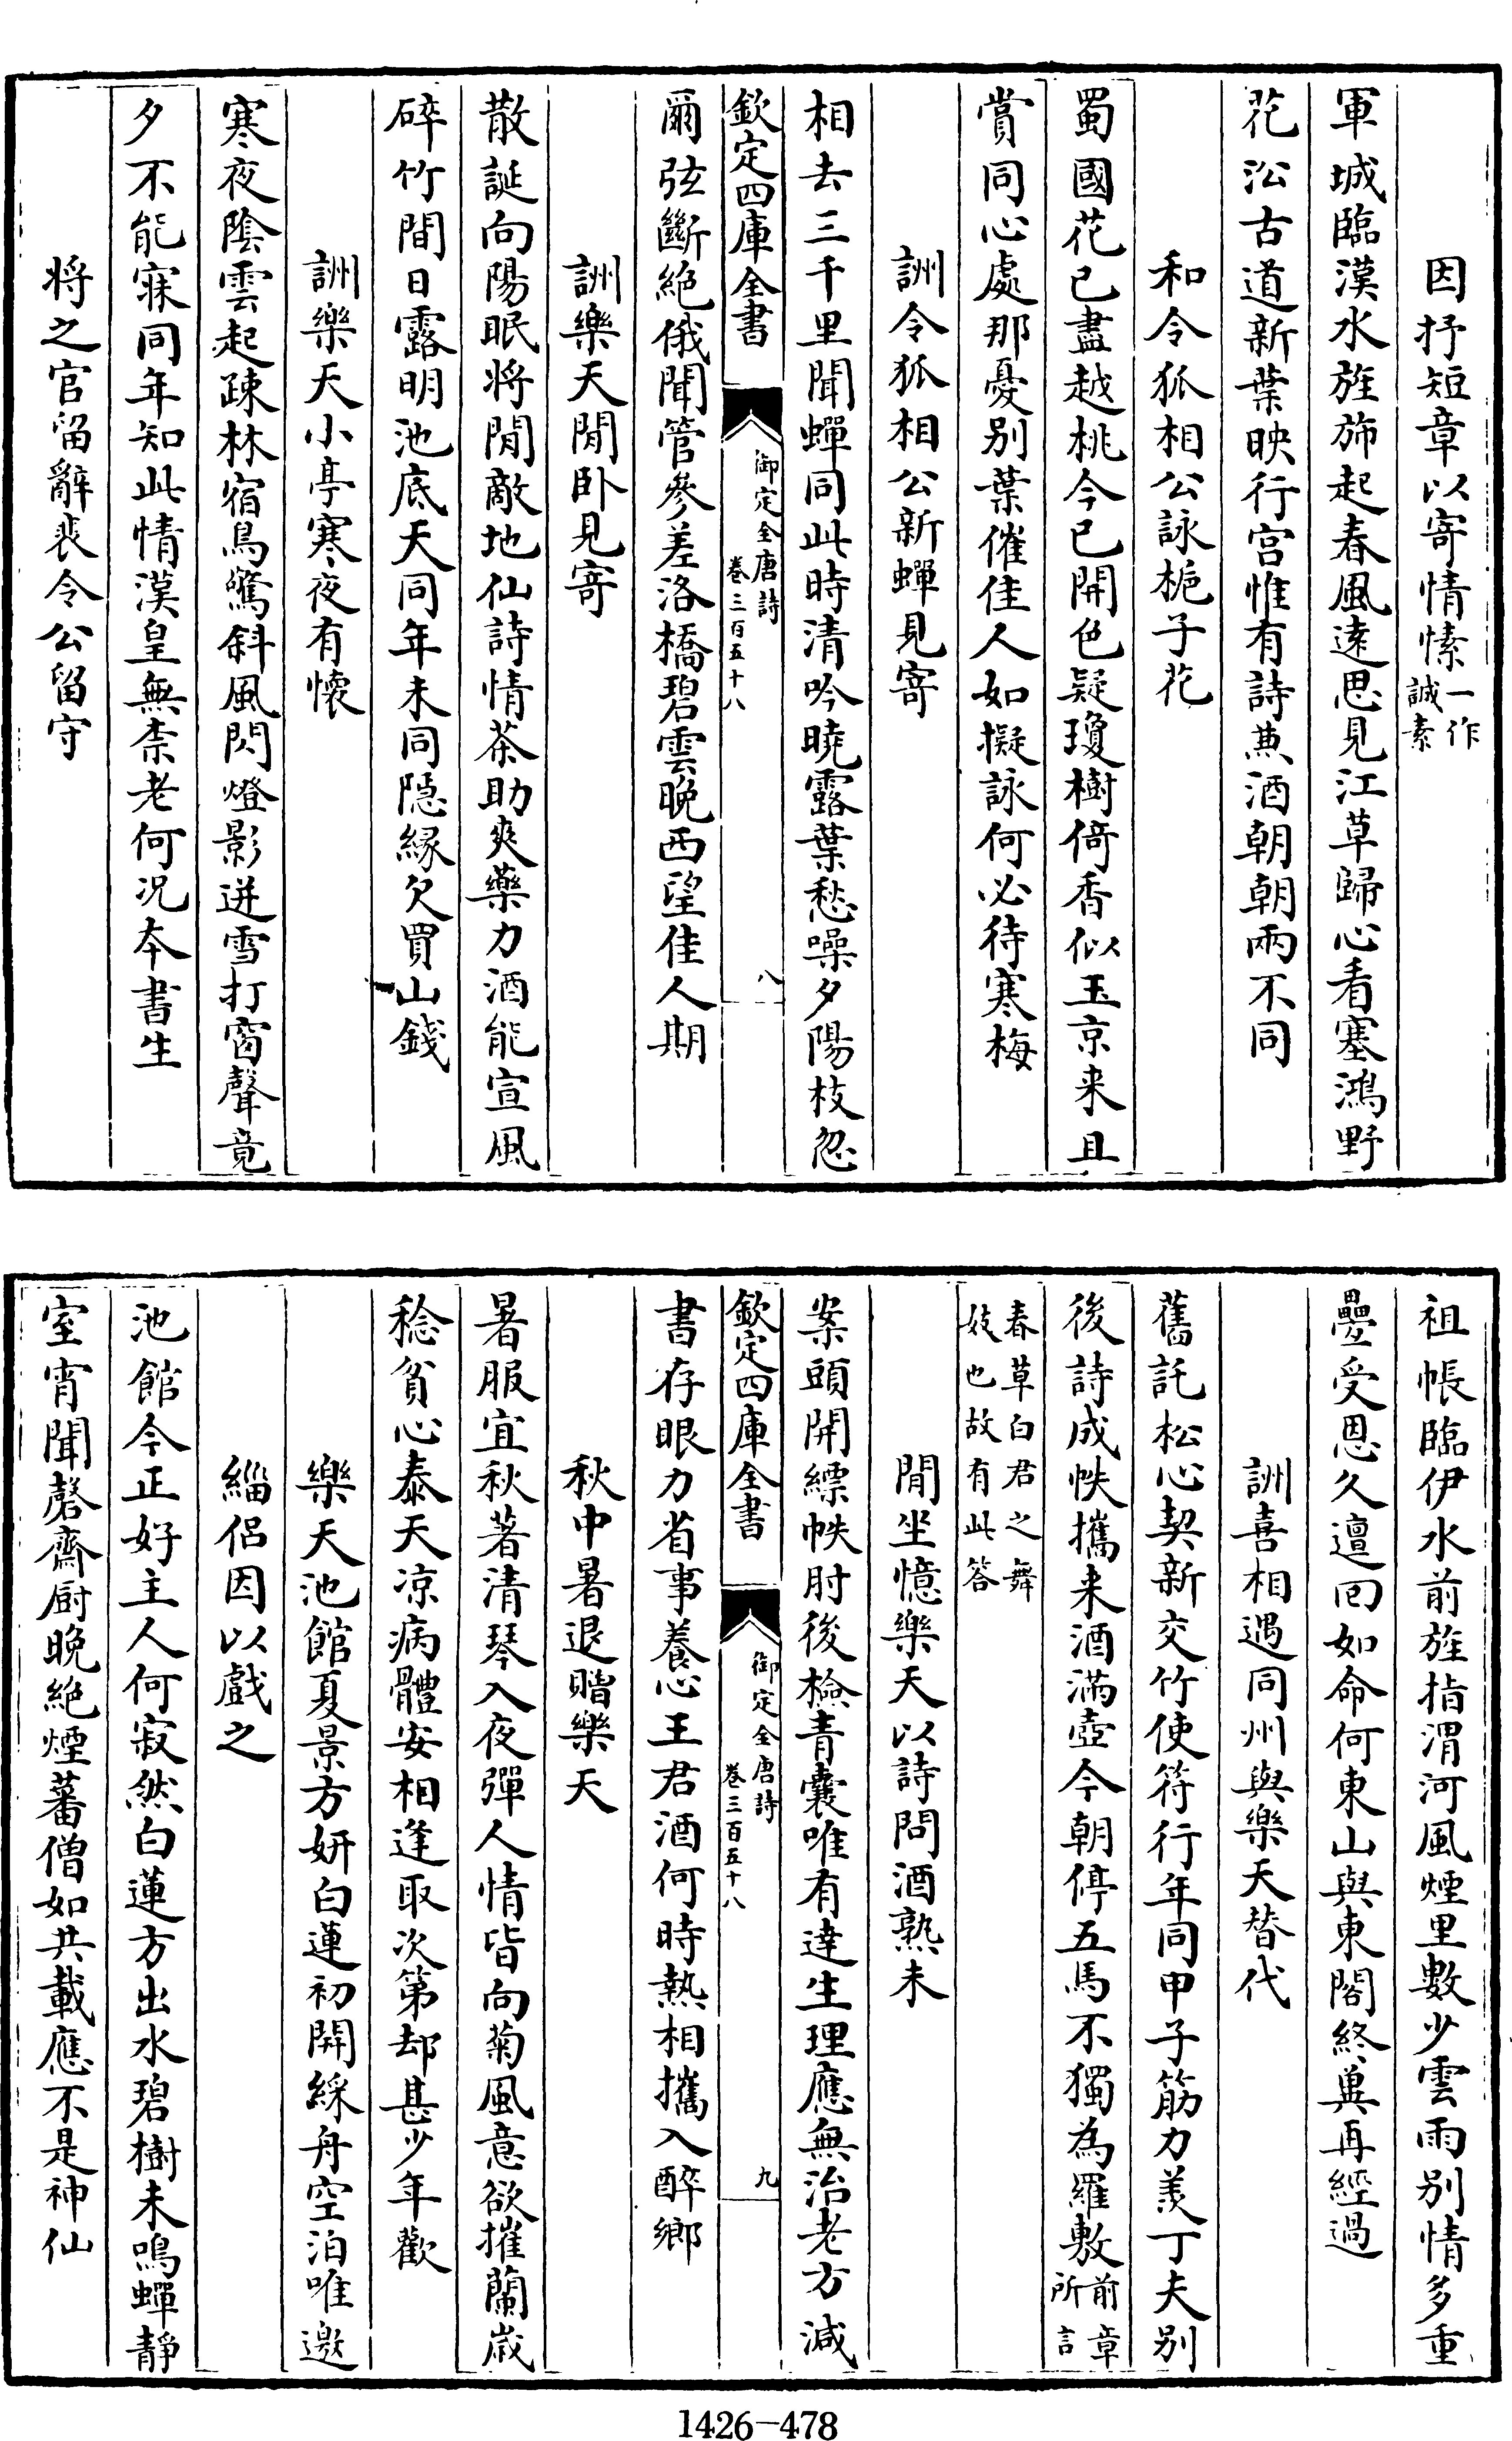 因抒短章以寄情愫一作誠素
軍城臨漢水旌旆起春風遠思見江草歸心看塞鴻野
花沿古道新葉映行宫惟有詩兼酒朝朝兩不同
和令狐相公詠梔子花
蜀國花已盡越桃今已開色疑瓊樹倚香似玉京来且
賞同心處那憂别葉催佳人如擬詠何必待寒梅
詶令狐相公新蟬見寄
相去三千里聞蟬同此時清吟曉露葉愁噪夕陽枝忽
欽定四庫全書 御定全唐詩 卷三百五十八 八
爾弦斷絶俄聞管參差洛橋碧雲晚西望佳人期
詶樂天閒卧見寄
散誕向陽眠将閒敵地仙詩情茶助爽藥力酒能宣風
碎竹間日露明池底天同年未同隠緣欠買山錢
詶樂天小亭寒夜有懐
寒夜陰雲起疎林宿鳥驚斜風閃燈影迸雪打窗聲竟
夕不能寐同年知此情漢皇無柰老何况本書生
将之官留辭裴令公留守
祖帳臨伊水前旌指渭河風煙里數少雲雨别情多重
疊受恩久邅回如命何東山與東閣終兾再經過
詶喜相遇同州與樂天替代
舊託松心契新交竹使符行年同甲子筋力羡丁夫别
後詩成帙攜来酒滿壺今朝停五馬不獨為羅敷前章所言
春草白君之舞妓也故有此答
閒坐憶樂天以詩問酒熟未
案頭開縹帙肘後檢青囊唯有達生理應無治老方減
欽定四庫全書 御定全唐詩 卷三百五十八 九
書存眼力省事養心王君酒何時熟相攜入醉鄉
秋中暑退贈樂天
暑服宜秋著清琴入夜彈人情皆向菊風意欲摧蘭嵗
稔貧心泰天凉病體安相逢取次第却甚少年歡
樂天池館夏景方妍白蓮初開綵舟空泊唯邀
緇侣因以戲之
池館今正好主人何寂然白蓮方出水碧樹未鳴蟬靜
室宵聞磬齋厨晚絶煙蕃僧如共載應不是神仙
1426-478